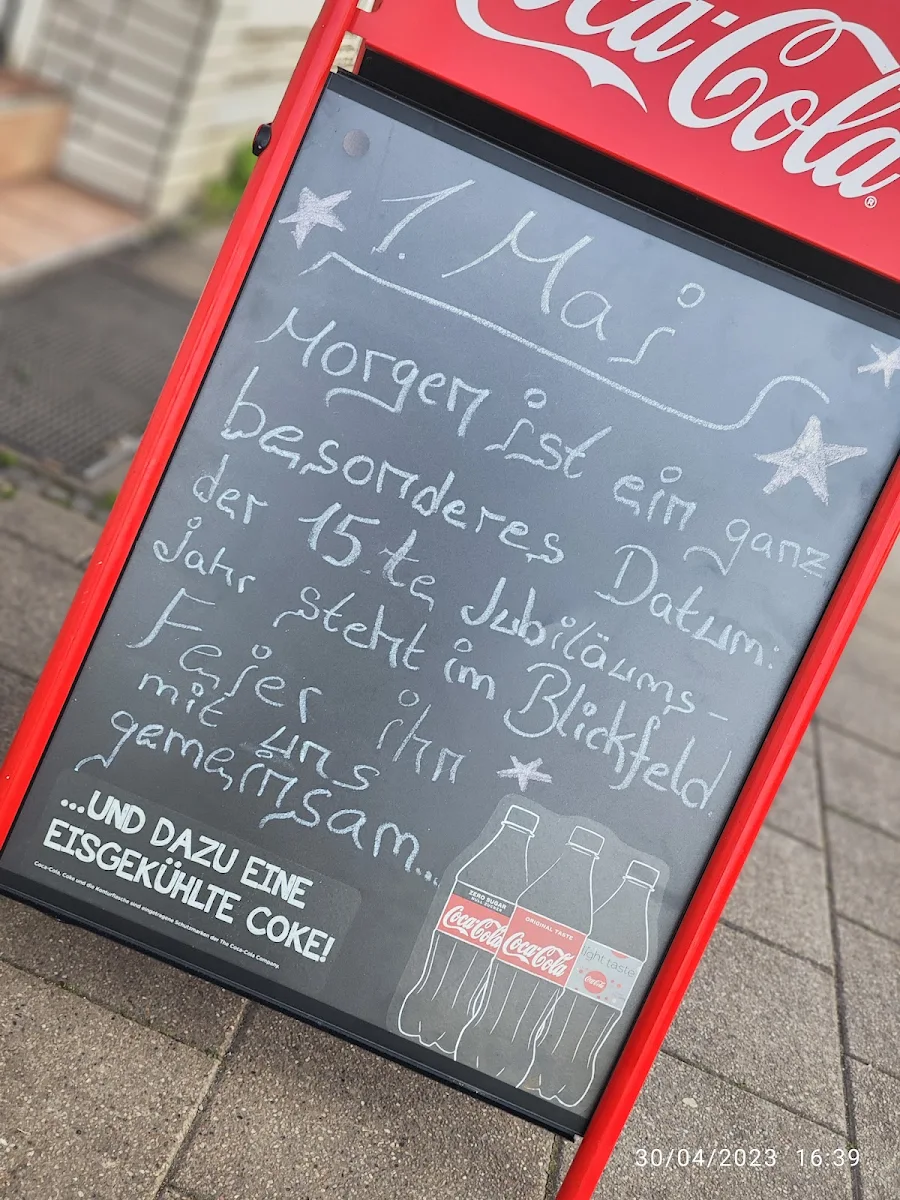 Coca-Cola®
1. Mai
Morgen ist ein ganz
besonderes Datum:
der 15.te Jubiläums-
jahr steht im Blickfeld
Feier ihn
mit uns
gemeinsam...
...UND DAZU EINE
EISGEKÜHLTE COKE!
Coca-Cola, Coke und die Konturflasche sind eingetragene Schutzmarken der The Coca-Cola Company.
ZERO SUGAR
NULL ZUCKER
Coca-Cola
ORIGINAL TASTE
Coca-Cola
light taste
Coca-Cola
30/04/2023 16:39